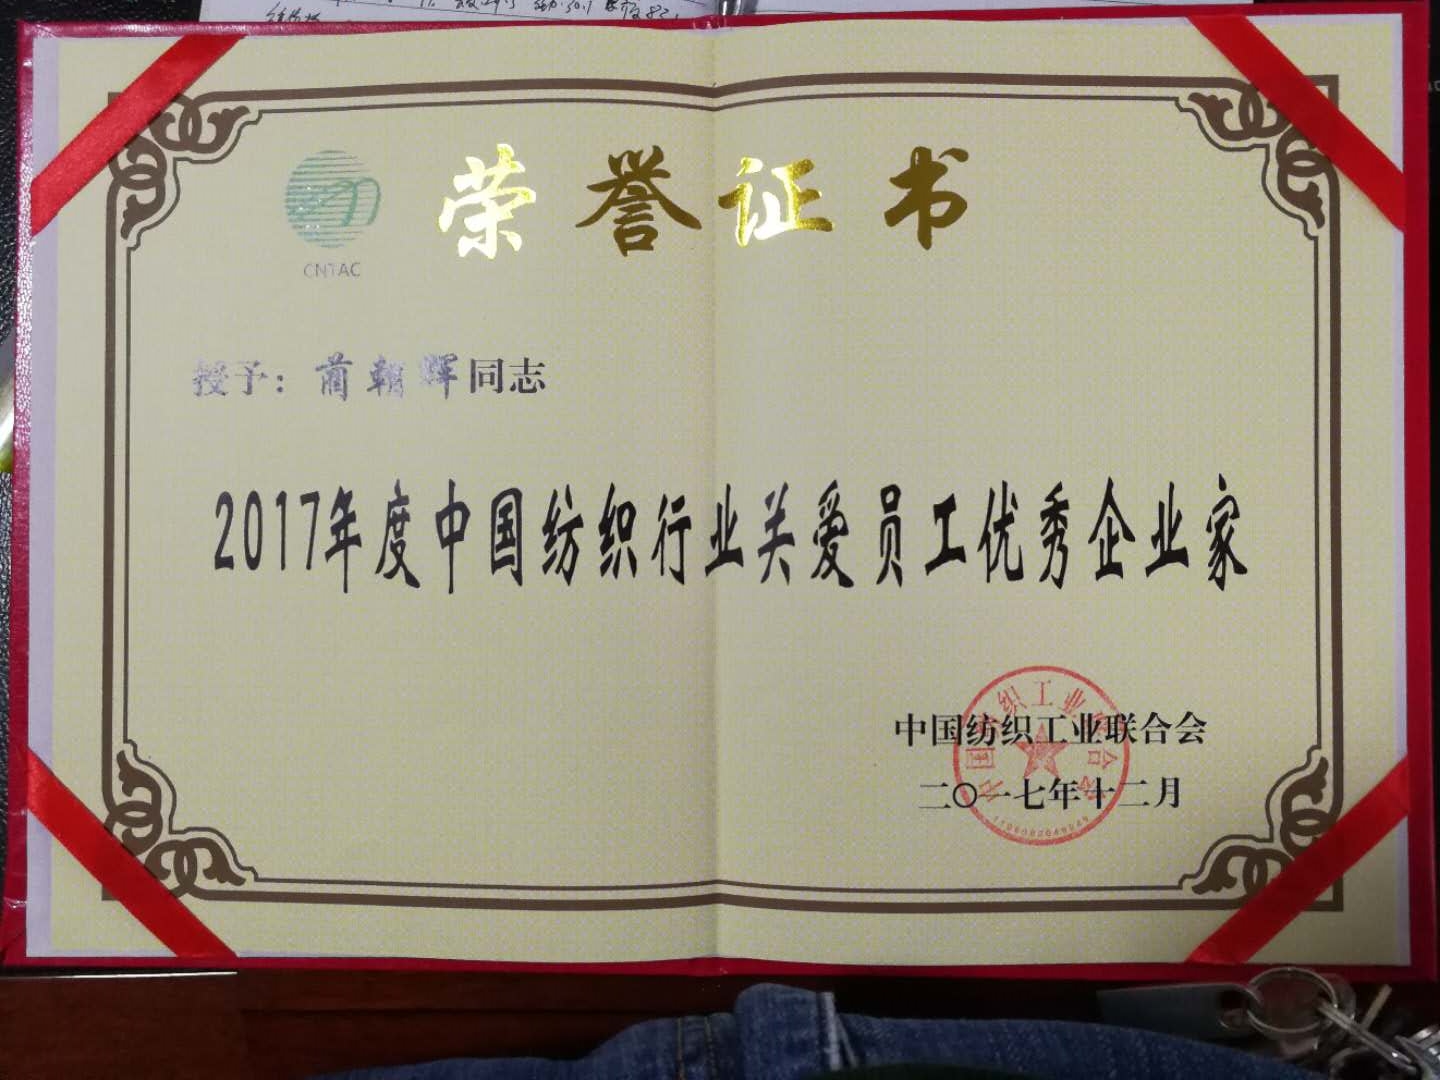 荣誉证书
CNTAC
授予：蔺朝辉同志
2017年度中国纺织行业关爱员工优秀企业家
中国纺织工业联合会
二〇一七年十二月
中国纺织工业联合会